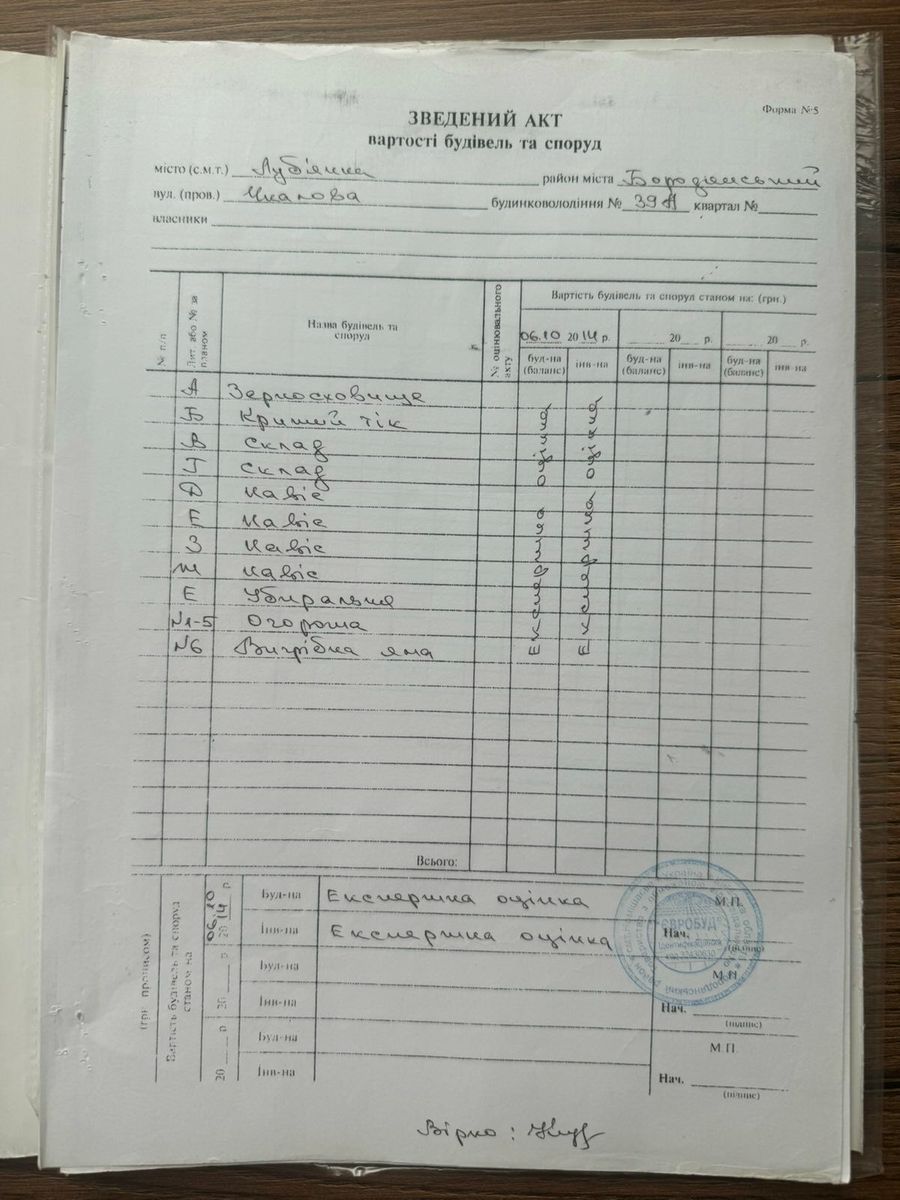 Форма №5
ЗВЕДЕНИЙ АКТ
вартості будівель та споруд
місто (с.м.т.) Луб'янка район міста Бородянський
вул. (пров.) Чкалова будинковолодіння № 39А квартал №
власники
№ п/п Літ. або № за планом Назва будівель та споруд № оцінювального акту Вартість будівель та споруд станом на: (грн.)
06.10 2014 р. 20 р. 20 р.
буд-на (баланс) інв-на буд-на (баланс) інв-на буд-на (баланс) інв-на
А Зерносховище
Б Критий тік
В Склад
Г Склад
Д Навіс
Е Навіс
З Навіс
Ж Навіс
Е Убиральня
№1-5 Огорожа
№6 Вигрібна яма
Експертна оцінка
Експертна оцінка
Всього:
(грн. прописом)
Вартість будівель та споруд станом на
06.10 2014 р
Буд-на Експертна оцінка М.П.
Інв-на Експертна оцінка Нач.
(підпис)
20 р
Буд-на М.П.
Інв-на Нач.
(підпис)
20 р
Буд-на М.П.
Інв-на Нач.
(підпис)
Україна
ЄВРОБУД
Ідентифікаційний
Вірно: